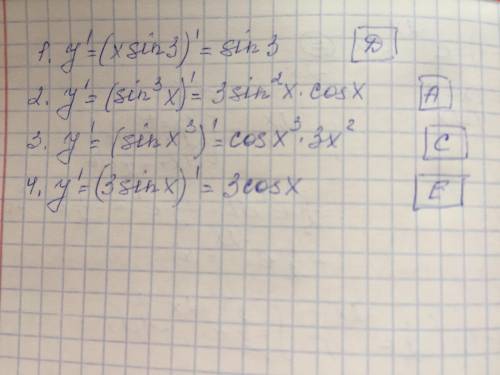 1. y'=(x sin3)'= sin3 D
2. y'=(sin³x)'= 3sin²x·cosx A
3. y'=(sinx³)'=cosx³·3x² C
4. y'=(3sinx)'= 3cosx E